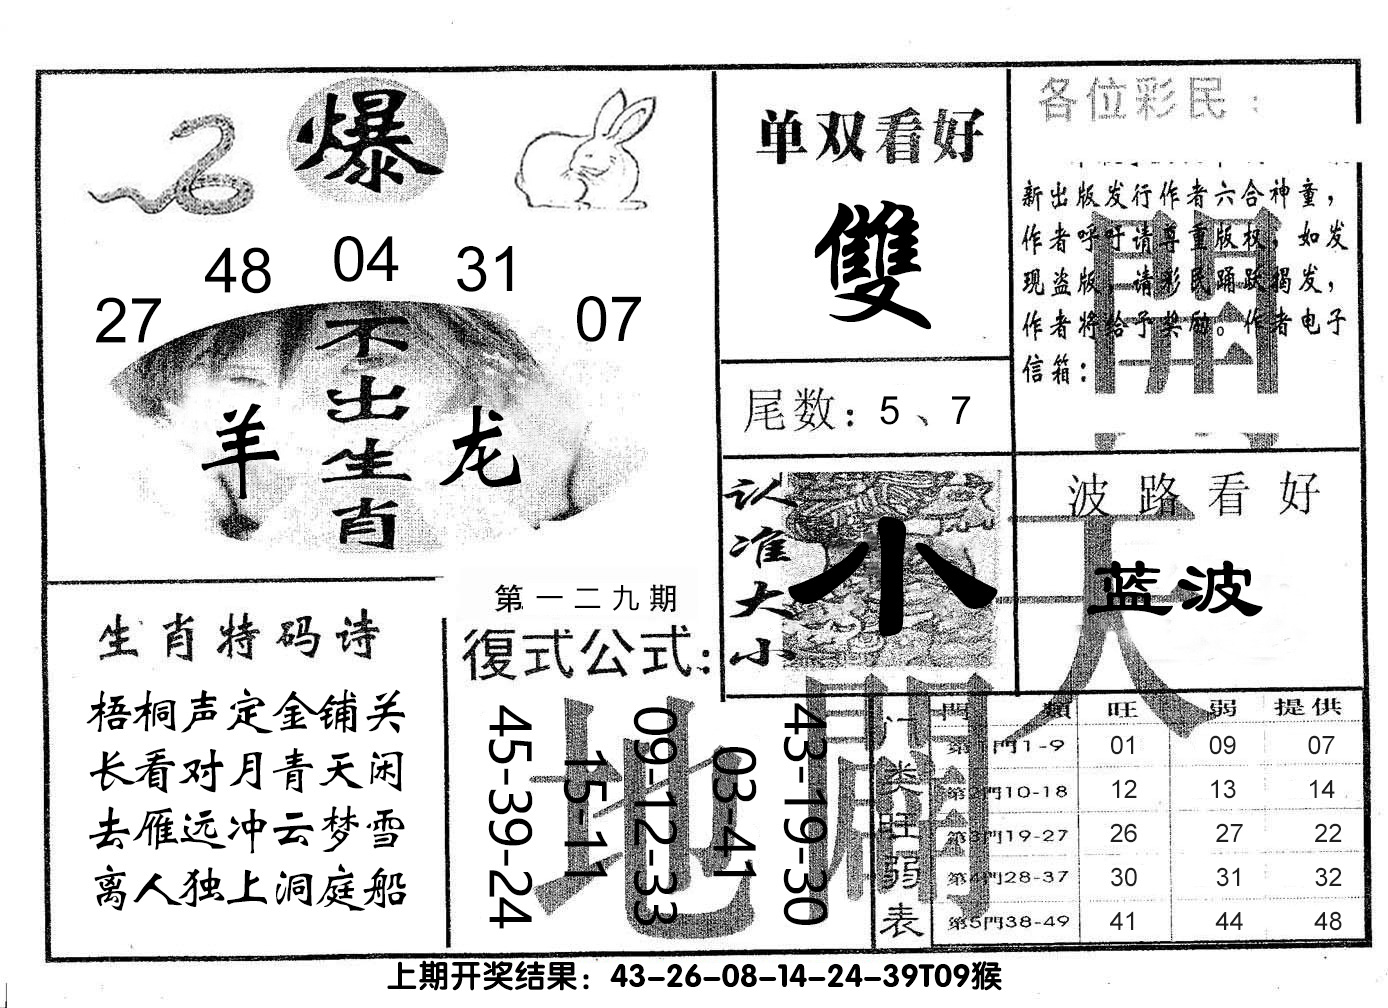 爆
48 04 31
27 07
不出生肖
羊 龙
单双看好
雙
尾数：5、7
各位彩民：
新出版发行作者六合神童，
作者呼吁请尊重版权，如发
现盗版，请彩民踊跃揭发，
作者将给予奖励。作者电子
信箱：
認准大小
小
波路看好
蓝波
生肖特码诗
梧桐声定金铺关
长看对月青天闲
去雁远冲云梦雪
离人独上洞庭船
第一二九期
復式公式：
45-39-24
15-11
09-12-33
03-41
43-19-30
天
地
開
門類 旺 弱 提供
门类旺弱表
第1門1-9 01 09 07
第2門10-18 12 13 14
第3門19-27 26 27 22
第4門28-37 30 31 32
第5門38-49 41 44 48
上期开奖结果：43-26-08-14-24-39T09猴